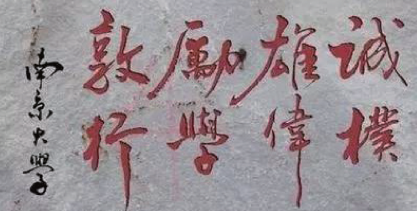 誠樸
雄偉
勵學
敦行
南京大學